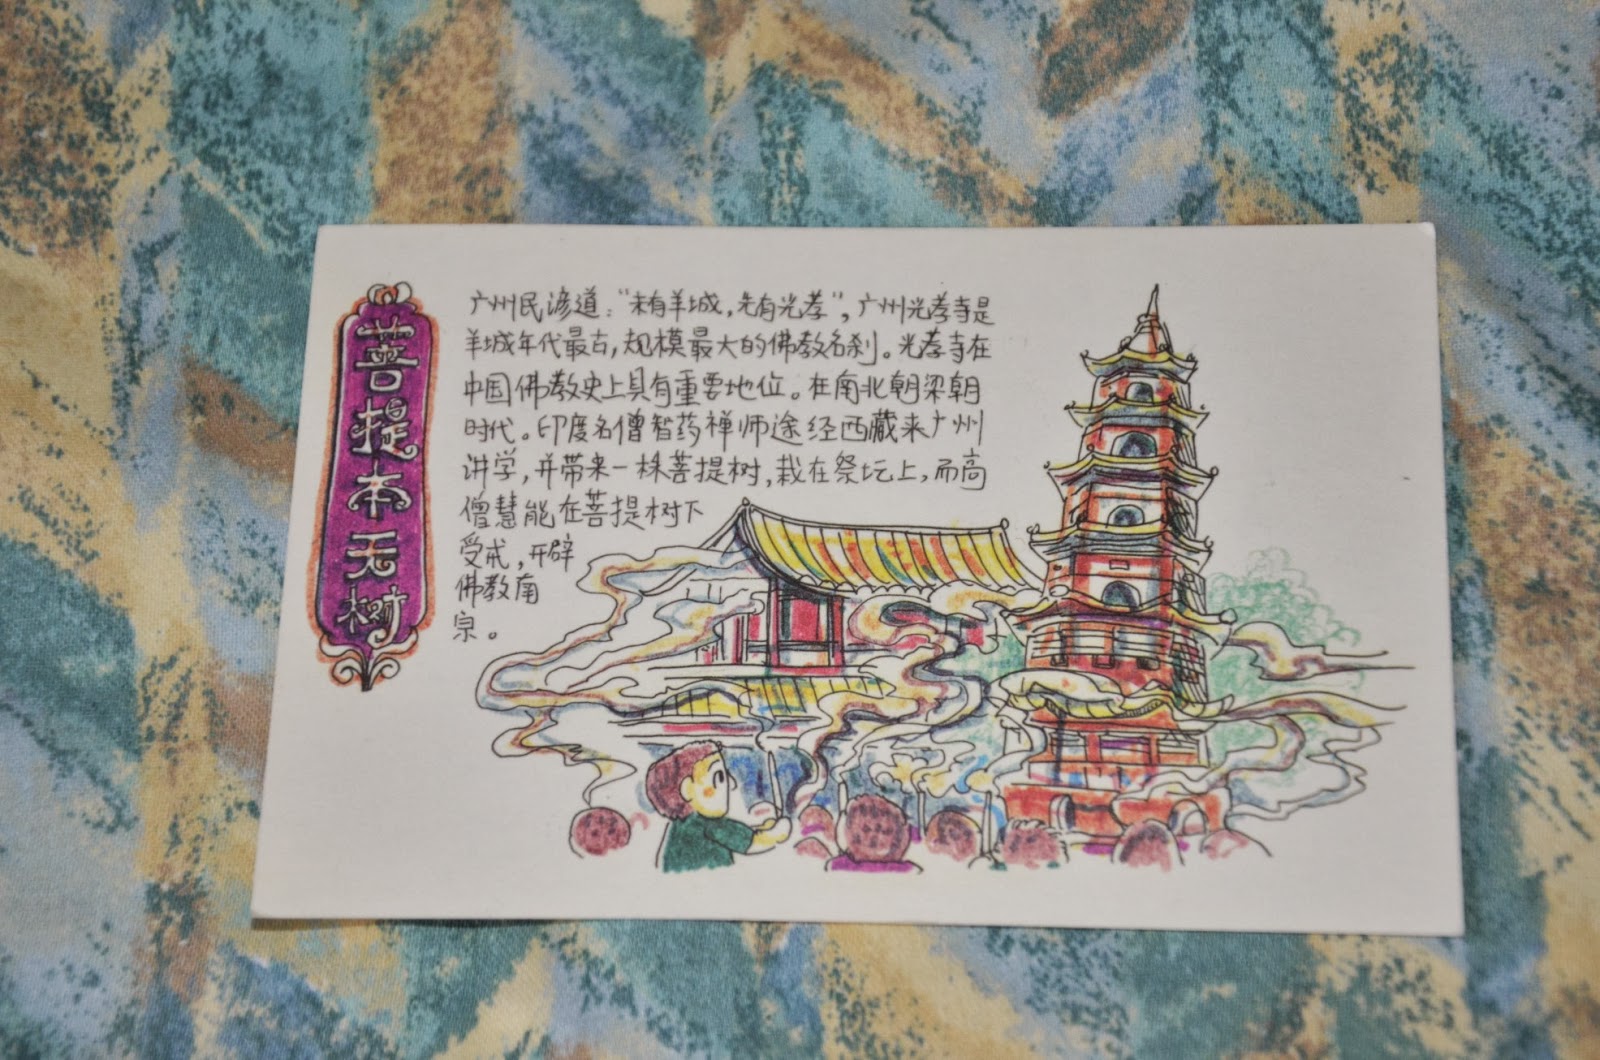 菩提本无树
广州民谚道："未有羊城，先有光孝"，广州光孝寺是
羊城年代最古，规模最大的佛教名刹。光孝寺在
中国佛教史上具有重要地位。在南北朝梁朝
时代。印度名僧智药禅师途经西藏来广州
讲学，并带来一株菩提树，栽在祭坛上，而高
僧慧能在菩提树下
受戒，开辟
佛教南
宗。